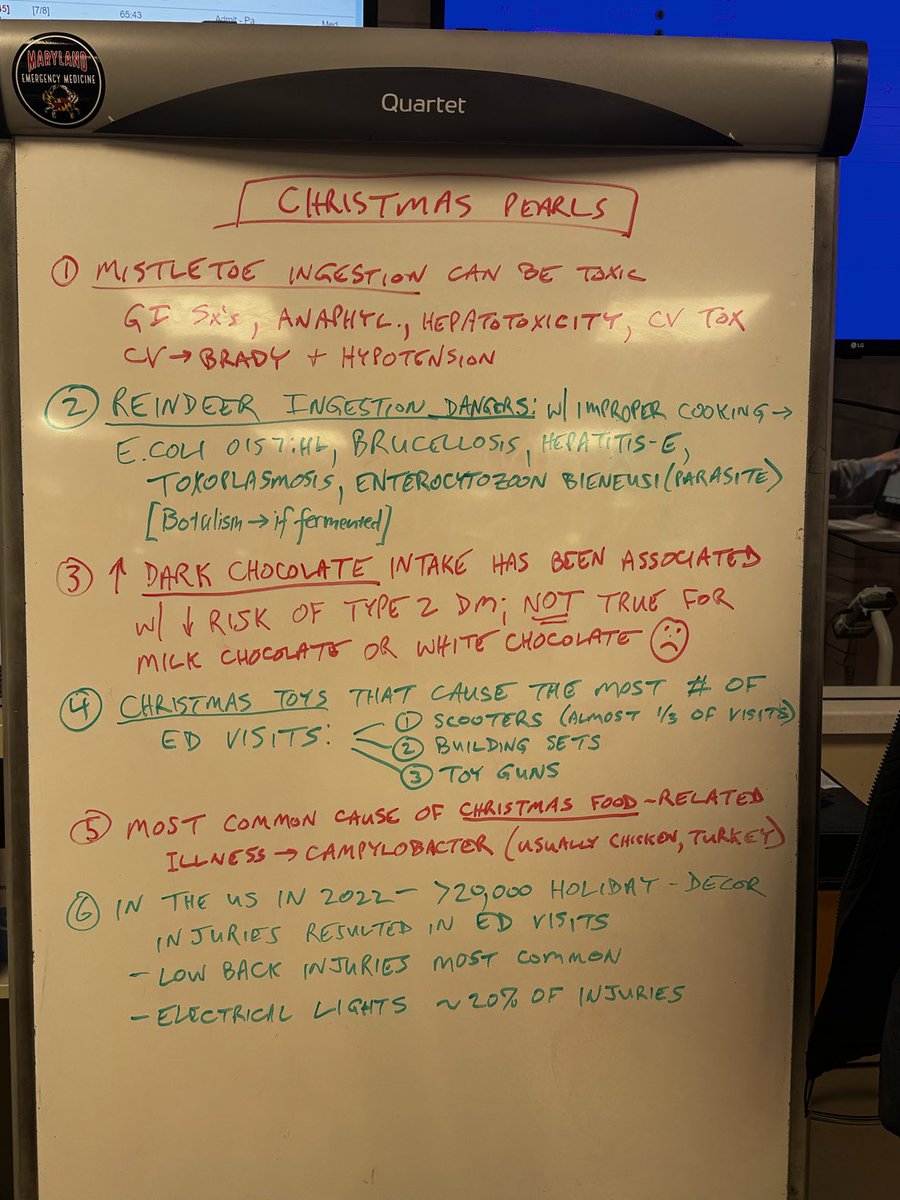 [7/8]
65:43
Admit - Pa
Med
MARYLAND
EMERGENCY MEDICINE
Quartet
CHRISTMAS PEARLS
① MISTLETOE INGESTION CAN BE TOXIC
GI Sx's, ANAPHYL., HEPATOTOXICITY, CV TOX
CV → BRADY + HYPOTENSION
② REINDEER INGESTION DANGERS: W/ IMPROPER COOKING →
E.COLI 0157:H7, BRUCELLOSIS, HEPATITIS-E,
TOXOPLASMOSIS, ENTEROCYTOZOON BIENEUSI (PARASITE)
[Botulism → if fermented]
③ ↑ DARK CHOCOLATE INTAKE HAS BEEN ASSOCIATED
W/ ↓ RISK OF TYPE 2 DM; NOT TRUE FOR
MILK CHOCOLATE OR WHITE CHOCOLATE ☹
④ CHRISTMAS TOYS THAT CAUSE THE MOST # OF
ED VISITS: ① SCOOTERS (ALMOST 1/3 OF VISITS)
② BUILDING SETS
③ TOY GUNS
⑤ MOST COMMON CAUSE OF CHRISTMAS FOOD-RELATED
ILLNESS → CAMPYLOBACTER (USUALLY CHICKEN, TURKEY)
⑥ IN THE US IN 2022 - >20,000 HOLIDAY-DECOR
INJURIES RESULTED IN ED VISITS
- LOW BACK INJURIES MOST COMMON
- ELECTRICAL LIGHTS ~20% OF INJURIES
LG